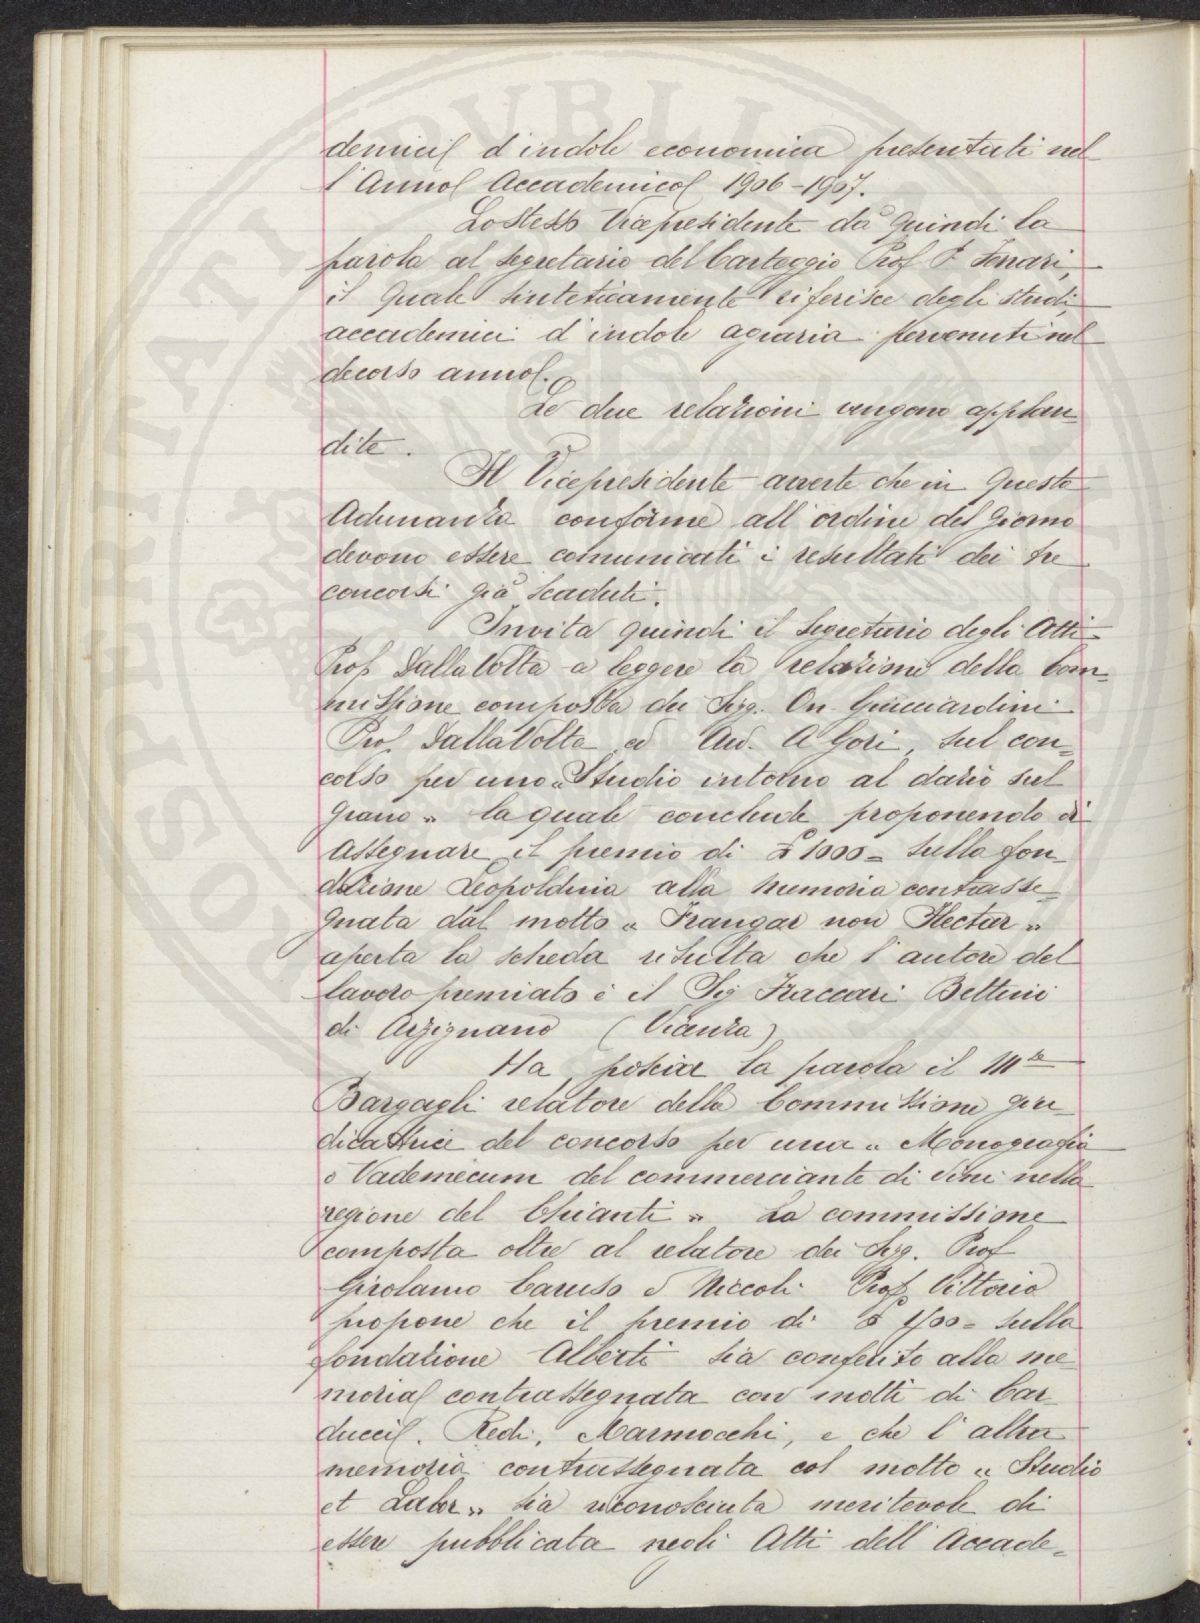 demici d'indole economica presentati nel
l'Anno Accademico 1906-1907.
Lo stesso Vicepresidente dà quindi la
parola al Segretario del Carteggio Prof P. Ferrari,
il quale sinteticamente riferisce degli studi
accademici d'indole agraria pervenuti nel
decorso anno.
Le due relazioni vengono applau
dite.
Il Vicepresidente averte che in questa
Adunanza conforme all'ordine del giorno
devono essere comunicati i resultati dei tre
concorsi già scaduti.
Invita quindi il Segretario degli Atti
Prof Dalla Volta a leggere la relazione della Com=
missione composta dei Sigg. On. Guicciardini
Prof. Dalla Volta ed Avv. A Gori, sul con=
corso per uno "Studio intorno al dazio sul
grano" la quale conclude proponendo di
assegnare il premio di £ 1000= sulla fon_
dazione Leopoldina alla memoria contrasse=
gnata dal motto "Frangar non Flectar"
aperta la scheda risulta che l'autore del
lavoro premiato è il Sig Fraccari Bettino
di Arzignano (Vicenza)
Ha poscia la parola il M.se
Bargagli relatore della Commissione giu
dicatrice del concorso per una "Monografia
o Vademecum del commerciante di vini nella
regione del Chianti" La commissione
composta oltre al relatore dei Sigg. Prof
Girolamo Caruso e Niccoli Prof. Vittorio
propone che il premio di £ 400= sulla
fondazione Alberti sia conferito alla me
moria contrassegnata con motti di Car
ducci. Redi, Marmocchi, e che l'altra
memoria contrassegnata col motto "Studio
et Labor" sia riconosciuta meritevole di
essere pubblicata negli Atti dell'Accade=